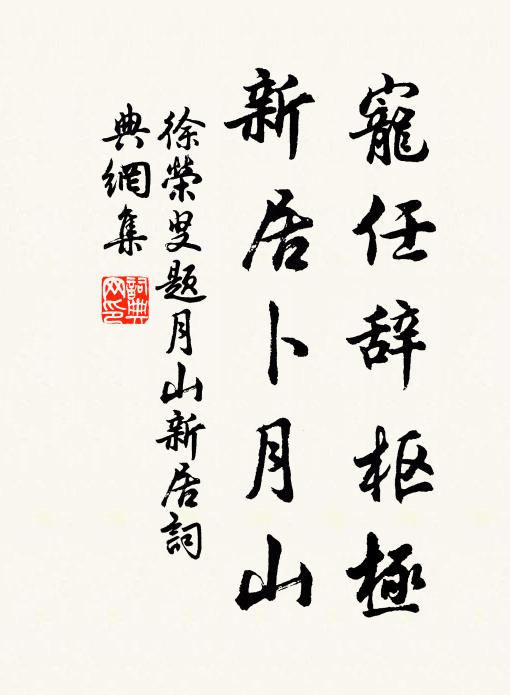 寵任辞枢極
新居卜月山
徐榮叟题月山新居詞
典網集
詞典网印